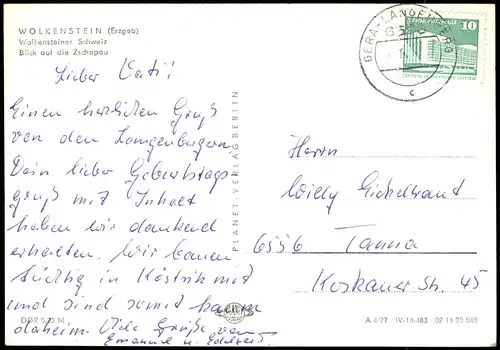 WOLKENSTEIN (Erzgeb)
Wolkensteiner Schweiz
Blick auf die Zschopau
Lieber Vati!
Einen herzlichen Gruß
von den Langenbergern.
Dein lieber Geburtstags
gruß mit Inhalt
haben wir dankend
erhalten. Wir bauen
tüchtig in Köstritz mit
und sind somit kaum
daheim. Viele Grüße von
Emanuel u.
PLANET-VERLAG BERLIN
GERA-LANGENBERG
c
10
Herrn
Willy Eichelkraut
6556 Tanna
Koskauer Str. 45
DDR 0,25 M
A 4/77 IV-14-483 02 14 20 048